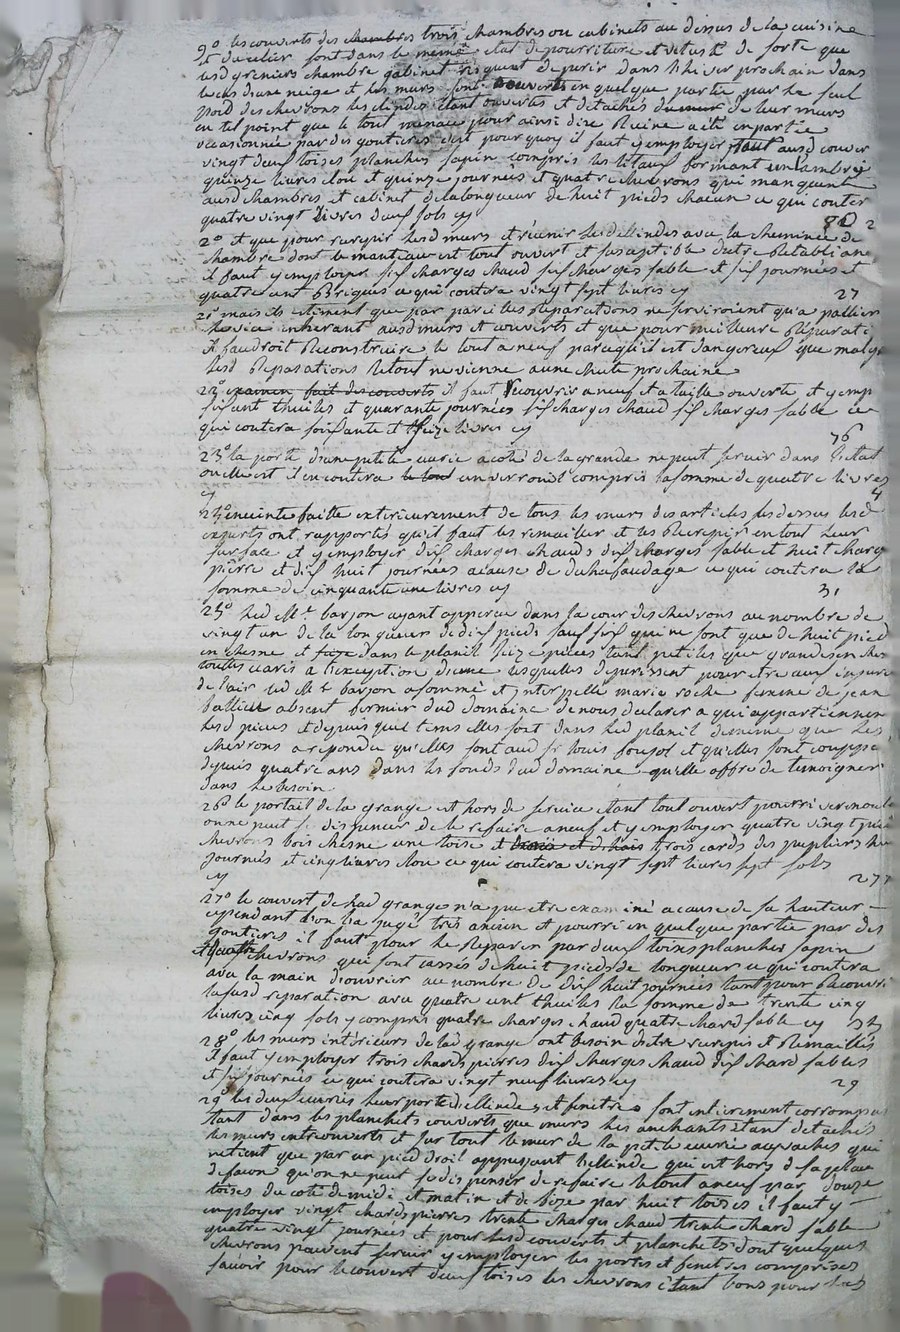 9° les couverts des chambres trois chambres ou cabinets au dessus de la cuisine
et du celier sont dans le meme etat de pourriture et vetusté de sorte que
lesd greniers chambre gabinet risquent de perir dans lhiver prochain dans
le cas dune neige et les murs sont ouverts en quelque partie par le seul
poid des chevrons les étant ouvertes et detachés de leur murs
en tel point que le tout menace pour ainsi dire Ruine a été en partie
occasionnée par des goutieres cest pour quoy il faut y employer pour ausd couver
vingt deux toises planches sapin compris les litaux formant
quinze livres clou et quinze journées et quatre chevrons qui manquent
ausd chambres et cabinet de la longueur de huit pieds chacun ce qui couter
quatre vingt livres deux sols cy
80 2
2° et que pour rurepir lesd murs et reunir avec la cheminée de
chambre dont le manteau est tout ouvert et susceptible detre Retabli
il faut y employer six charges chaud six charges sable et six journées et
quatre cent Briques ce qui coutera vingt sept livres cy
27
21° mais ils estiment que par pareilles Reparations ne serviroient qua pallier
le vice inherant ausd murs et couverts et que pour meilleure Réparati
il faudroit Reconstruire le tout a neuf parcequil est dangereux que malg
lesd Reparations le tout ne vienne a une chute prochaine
22° examen fait des couverts il faut Recouvrir a neuf et a taille ouverte et y emp
six cent thuiles et quarante journées six charges chaud six charges sable ce
qui coutera soixante et seize livres cy
76
23° la porte dune petite ecurie a coté de la grande ne peut servir dans letat
ou elle est il en coutera le tout un verrouil compris la somme de quatre livres
cy
4
24° enceinte faitte exterieurement de tous les murs des articles cy dessus lesd
experts ont rapportés quil faut les remailler et les Recrepir en tout leur
surface et y employer dix charges chauds dix charges sable et huit charg
pierre et dix huit journées a cause de dechafaudage ce qui coutera la
somme de cinquante une livres cy
51
25° Led Mr barjon ayant apperçu dans la cour des chevrons au nombre de
vingt un de la longueur de dix pieds sauf six qui ne sont que de huit pied
en chesne et seize dans le planil seize pieces tant petites que grandes en ches
toutes caris a lexception dune lesquelles deperissent pour etre aux injure
de lair led Mr barjon a sommé et interpellé marie roche femme de jean
absent fermier dud domaine de nous declarer a qui appartiennen
lesd pieces et depuis quel tems elles sont dans led planil de meme que les
chevrons a repondu quelles sont aud sr louis et quelles sont couppé
depuis quatre ans dans les fonds dud domaine quelle offre de temoigner
dans le besoin
26° le portail de la grange est hors de service etant tout ouvert pourri
on ne peut se dispenser de le refaire a neuf et y employer quatre vingt
chevrons bois chesne une toise et trois cards des pupliers
journées et cinq livres clou ce qui coutera vingt sept livres sept sols
cy
27 7
27° le couvert de lad grange na pu etre examiné a cause de sa hauteur
cependant lon la jugé tres ancien et pourri en quelque partie par des
goutieres il faut pour le Reparer par deux toises planches sapin
et quatre chevrons qui sont cassés de huit pieds de longueur ce qui coutera
avec la main douvrier au nombre de dix huit journées tant pour Recouvri
lasusd reparation avec quatre cent thuiles la somme de trente cinq
livres cinq sols y compris quatre charges chaud quatre chard sable cy
35 5
28° les murs interieurs de lad grange ont besoin detre rurepis et Remaillés
il faut y employer trois chards pierres dix charges chaud dix chard sables
et six journées ce qui coutera vingt neuf livres cy
29
29° les deux ecuries leur porte et fenetre sont entierement corrompus
tant dans les planchets couverts que murs les anchants etant detachés
les murs entreouverts et sur tout le mur de la petite ecurie aux vaches qui
ne tient que par un pied droit appuyant qui est hors de sa place
de facon quon ne peut se dispenser de refaire le tout a neuf par douze
toises du coté de midi et matin et de bize par huit toises il faut y
employer vingt chards pierres trente charges chaud trente chard sable
quatre vingt journées et pour lesd couverts et planchets dont quelques
chevrons peuvent servir y employer les portes et fenetres comprises
savoir pour le couvert deux toises les chevrons étant bons pour